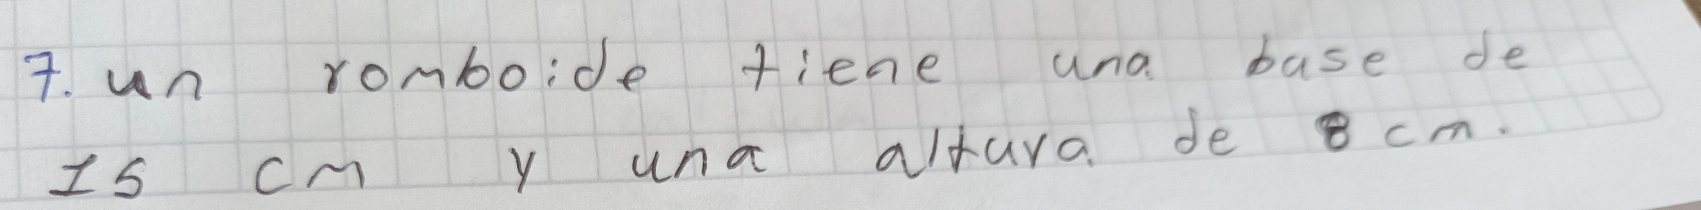 7. un romboide tiene una base de
15 cm y una altura de 8 cm.